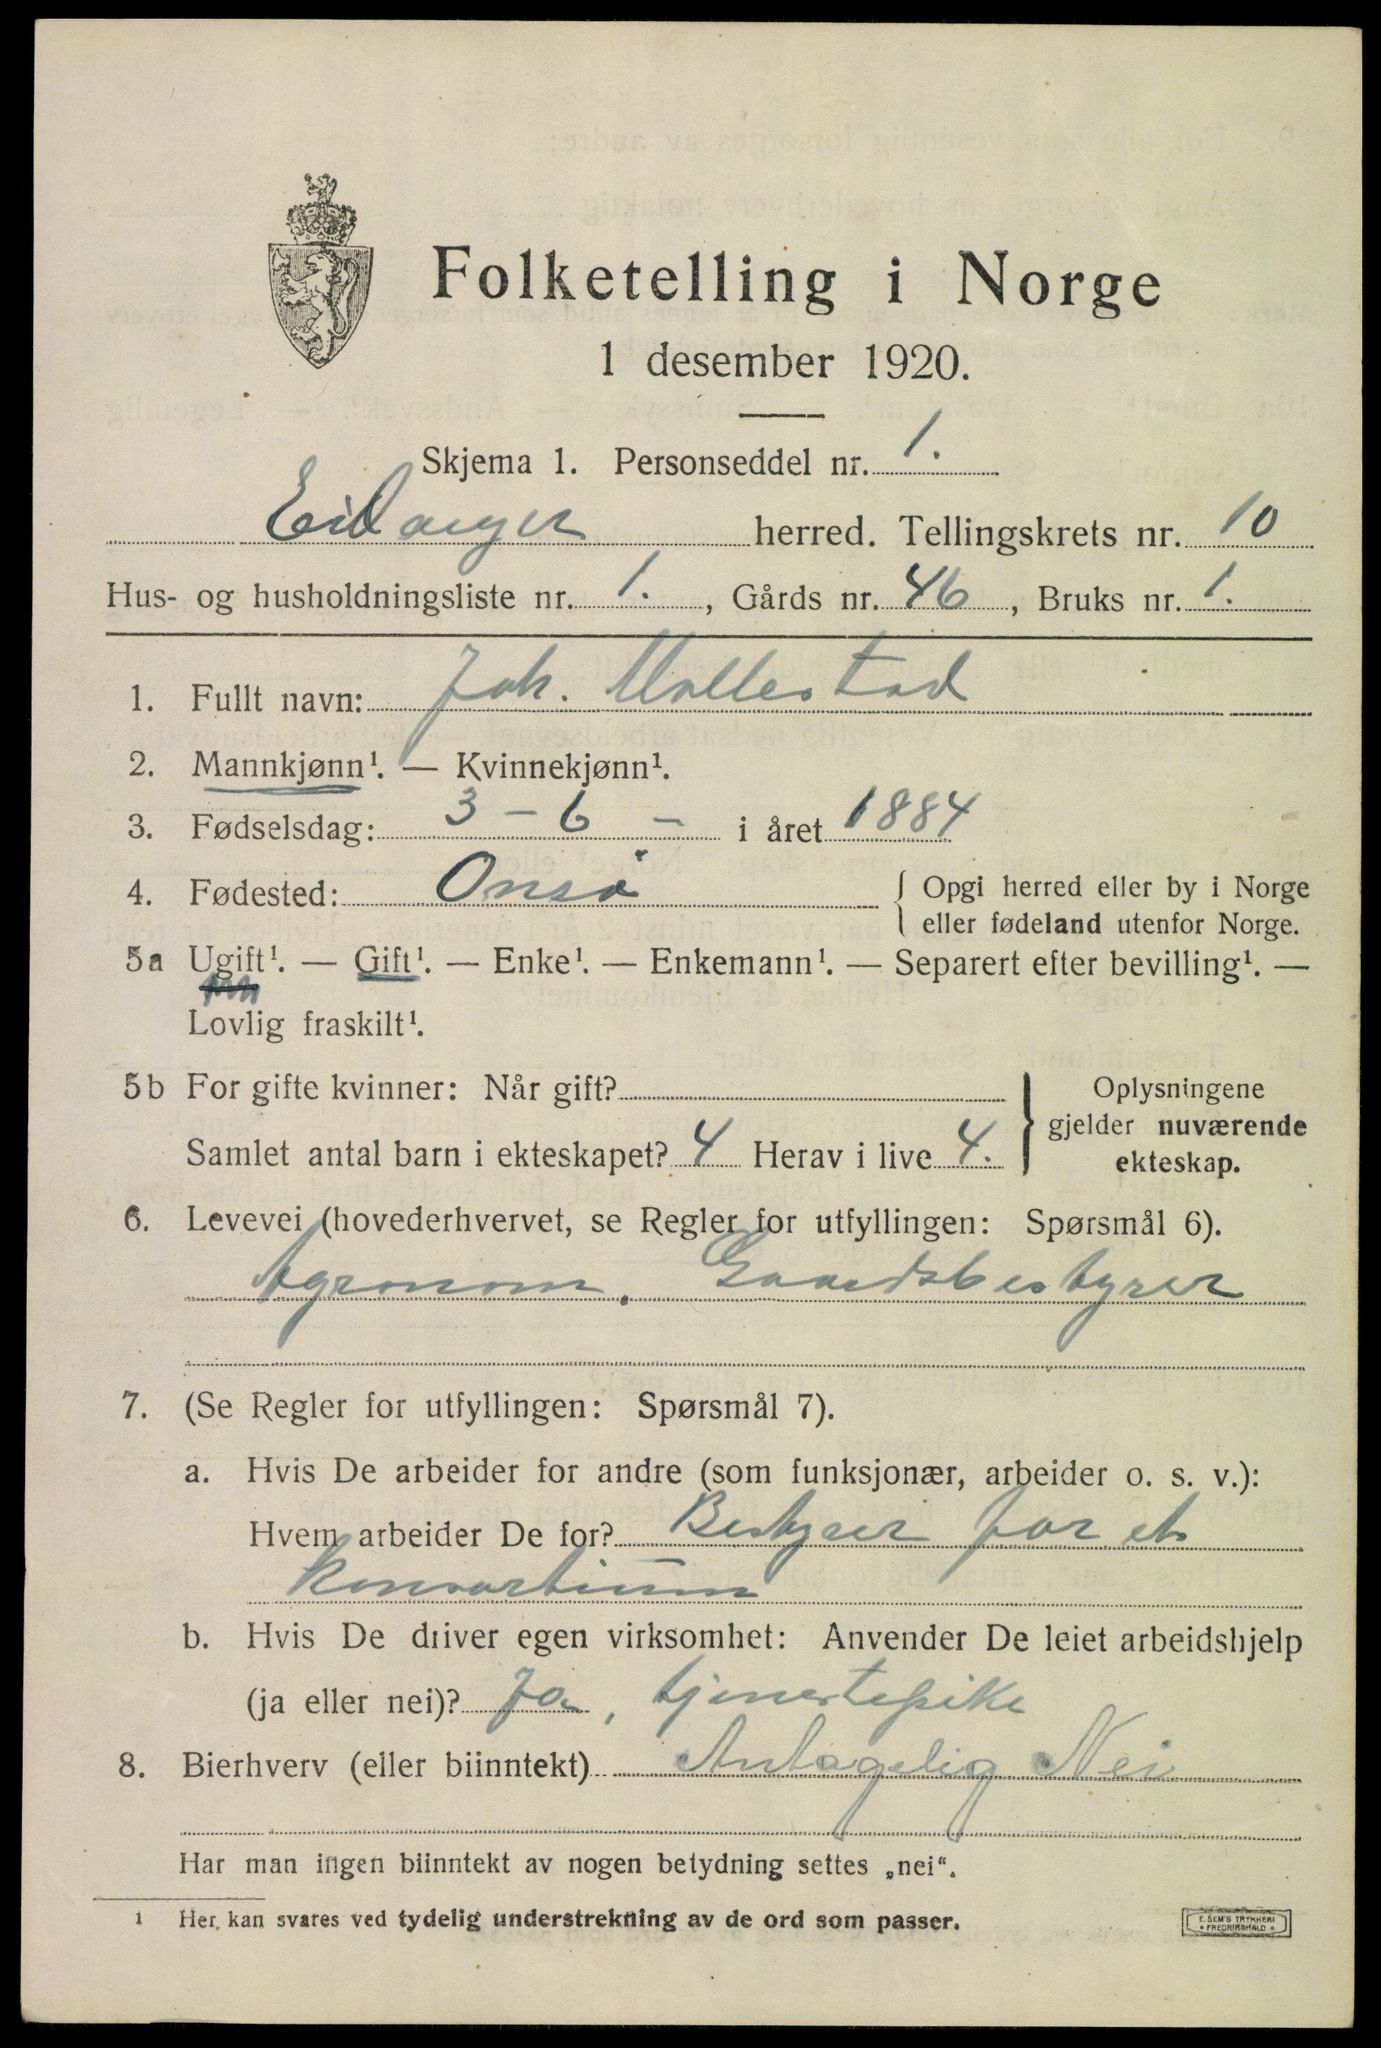 Folketelling i Norge
1 desember 1920.
Skjema 1. Personseddel nr. 1.
Eidanger herred. Tellingskrets nr. 10
Hus- og husholdningsliste nr. 1., Gårds nr. 46, Bruks nr. 1.
1. Fullt navn: Joh. Mollestad
2. Mannkjønn¹. — Kvinnekjønn¹.
3. Fødselsdag: 3 – 6 – i året 1884
4. Fødested: Onsø { Opgi herred eller by i Norge
eller fødeland utenfor Norge.
5a Ugift¹. — Gift¹. — Enke¹. — Enkemann¹. — Separert efter bevilling¹. —
Lovlig fraskilt¹.
5b For gifte kvinner: Når gift?
Samlet antal barn i ekteskapet? 4 Herav i live 4.
} Oplysningene
gjelder nuværende
ekteskap.
6. Levevei (hovederhvervet, se Regler for utfyllingen: Spørsmål 6).
Agronom. Gaardsbestyrer
7. (Se Regler for utfyllingen: Spørsmål 7).
a. Hvis De arbeider for andre (som funksjonær, arbeider o. s. v.):
Hvem arbeider De for? Bestyrer for et
konsortium
b. Hvis De driver egen virksomhet: Anvender De leiet arbeidshjelp
(ja eller nei)? Ja, tjenestepike
8. Bierhverv (eller biinntekt) Antagelig Nei
Har man ingen biinntekt av nogen betydning settes „nei“.
¹ Her kan svares ved tydelig understrekning av de ord som passer.
E. SEM'S TRYKKERI
FREDRIKSHALD